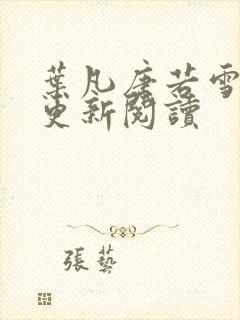 葉凡唐若雪
更新閱讀
張藝